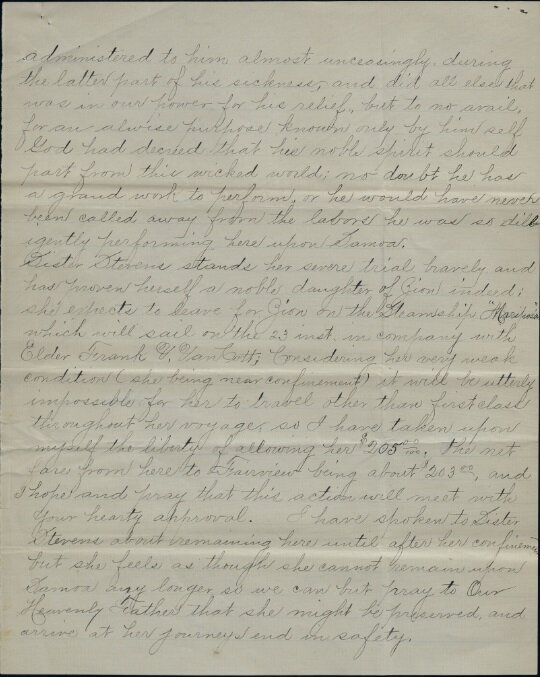 administered to him almost unceasingly during
the latter part of his sickness, and did all else that
was in our power for his relief, but to no avail,
for an alwise purpose known only by him self
God had decreed that his noble spirit should
part from this wicked world; no doubt he has
a grand work to perform, or he would have never
been called away from the labors he was so dill-
igently performing here upon Samoa.
Sister Stevens stands her severe trial bravely and
has proven herself a noble daughter of Zion indeed;
she expects to leave for Zion on the Steamship Mariposa
which will sail on the 23 inst. in company with
Elder Frank Y. VanCott; Considering her very weak
condition (she being near confinement) it will be utterly
impossible for her to travel other than first class
throughout her voyage, so I have taken upon
myself the liberty of allowing her $205.00. The net
fare from here to Fairview being about $203.00, and
I hope and pray that this action will meet with
your hearty approval. I have spoken to Sister
Stevens about remaining here until after her confinement
but she feels as though she cannot remain upon
Samoa any longer so we can but pray to Our
Heavenly Father that she might be preserved, and
arrive at her journeys end in safety.